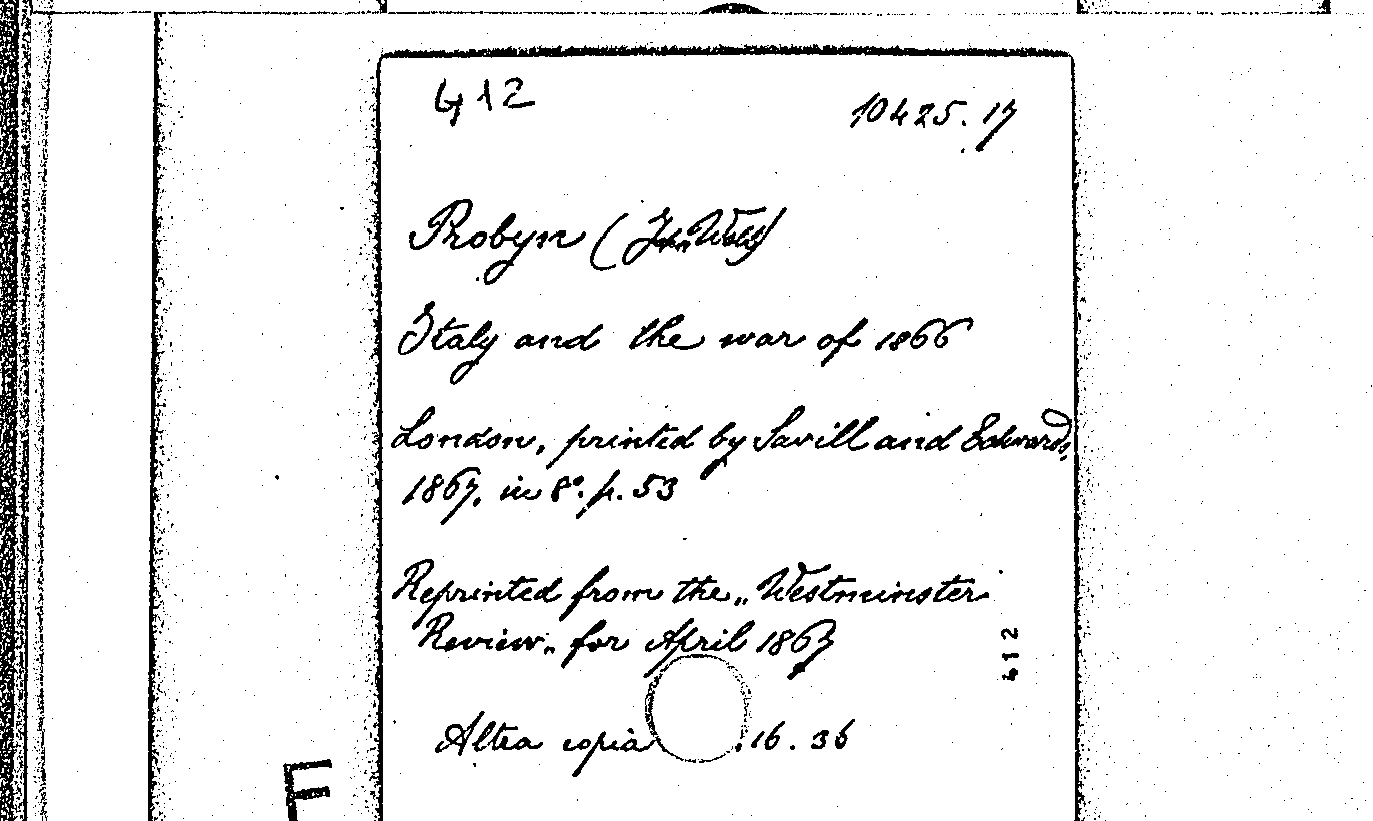 412
10425.17
Probyn (John Webb)
Italy and the war of 1866
London, printed by Savill and Edwards,
1867, in 8°. p. 53
Reprinted from the „Westminster
Review„ for April 1867
412
Altra copia .16.36
F